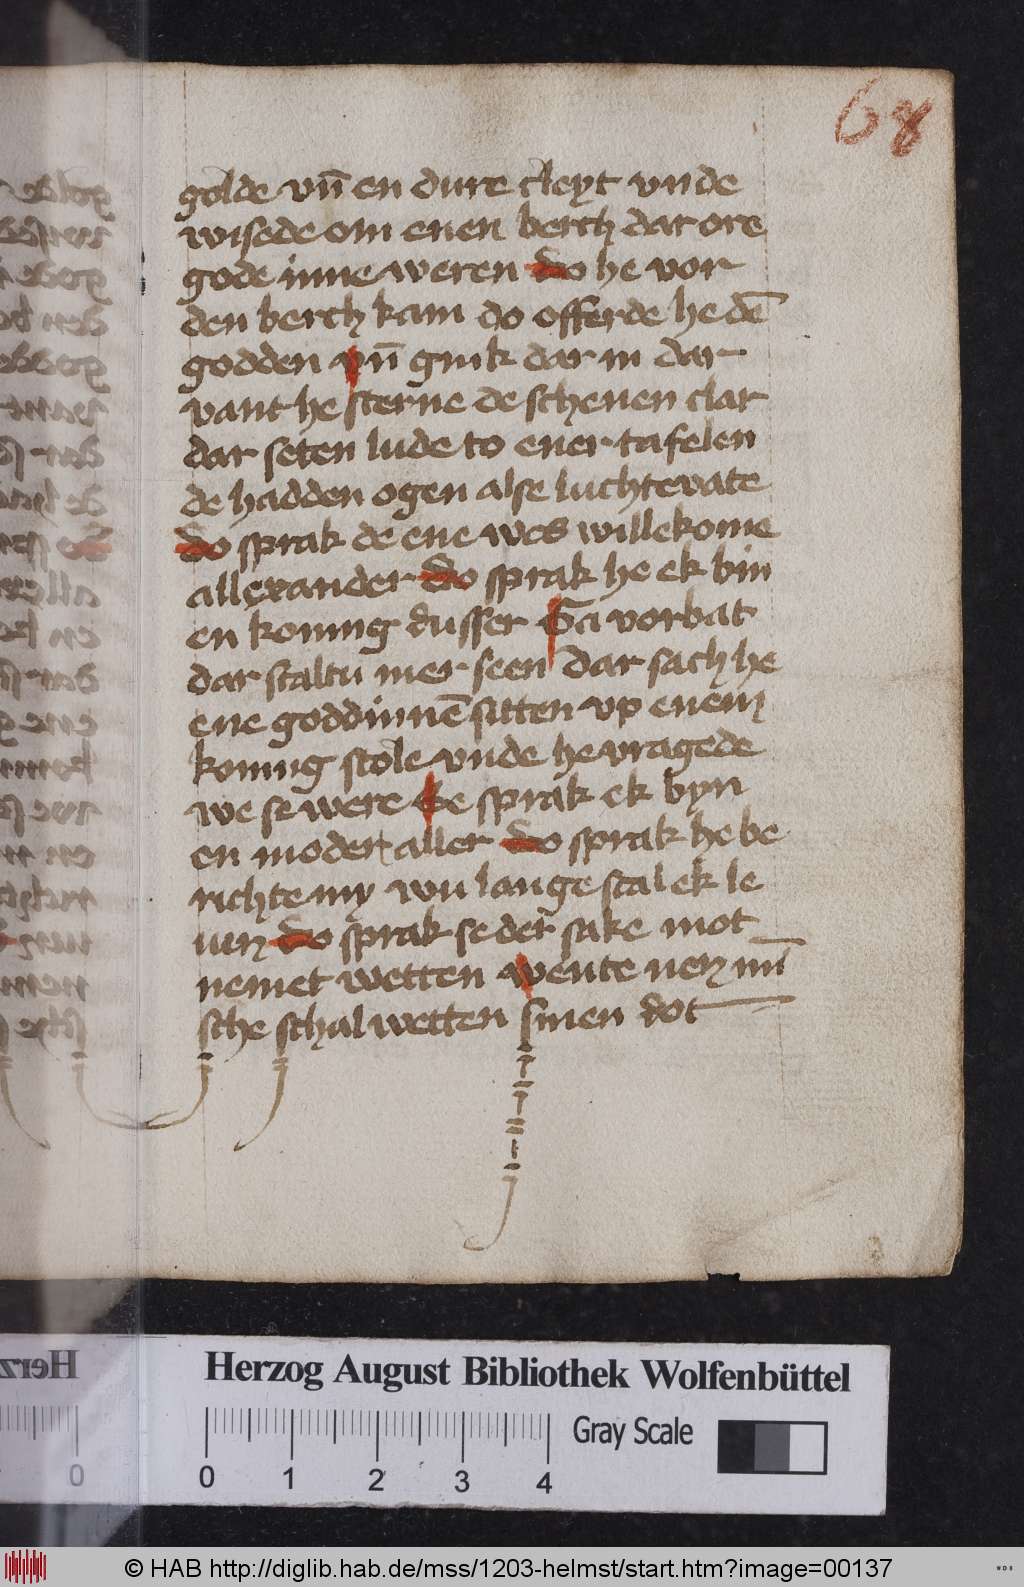 68
golde vn̄ en dure cleyt vnde
wisede om enen berch dar ore
gode inne weren do he vor
den berch kam do offerde he dē
godden vn̄ gink dar in dar
vant he sterne de schenen clar
dar seten lude to ener tafelen
de hadden ogen alse luchtevate
do sprak de ene wes willekome
allexander do sprak he ek bin
en koning dusser Ga vorbat
dar staltu mer seen dar sach he
ene goddinnē sitten vp enem
koning stole vnde he vragede
we se were Se sprak ek byn
en moder aller do sprak he be
richte my wu lange stal ek le
uen do sprak se der sake mot
nemet wetten wente nen mī
sche schal wetten sinen dot
Herzog August Bibliothek Wolfenbüttel
0 1 2 3 4
Gray Scale
© HAB http://diglib.hab.de/mss/1203-helmst/start.htm?image=00137